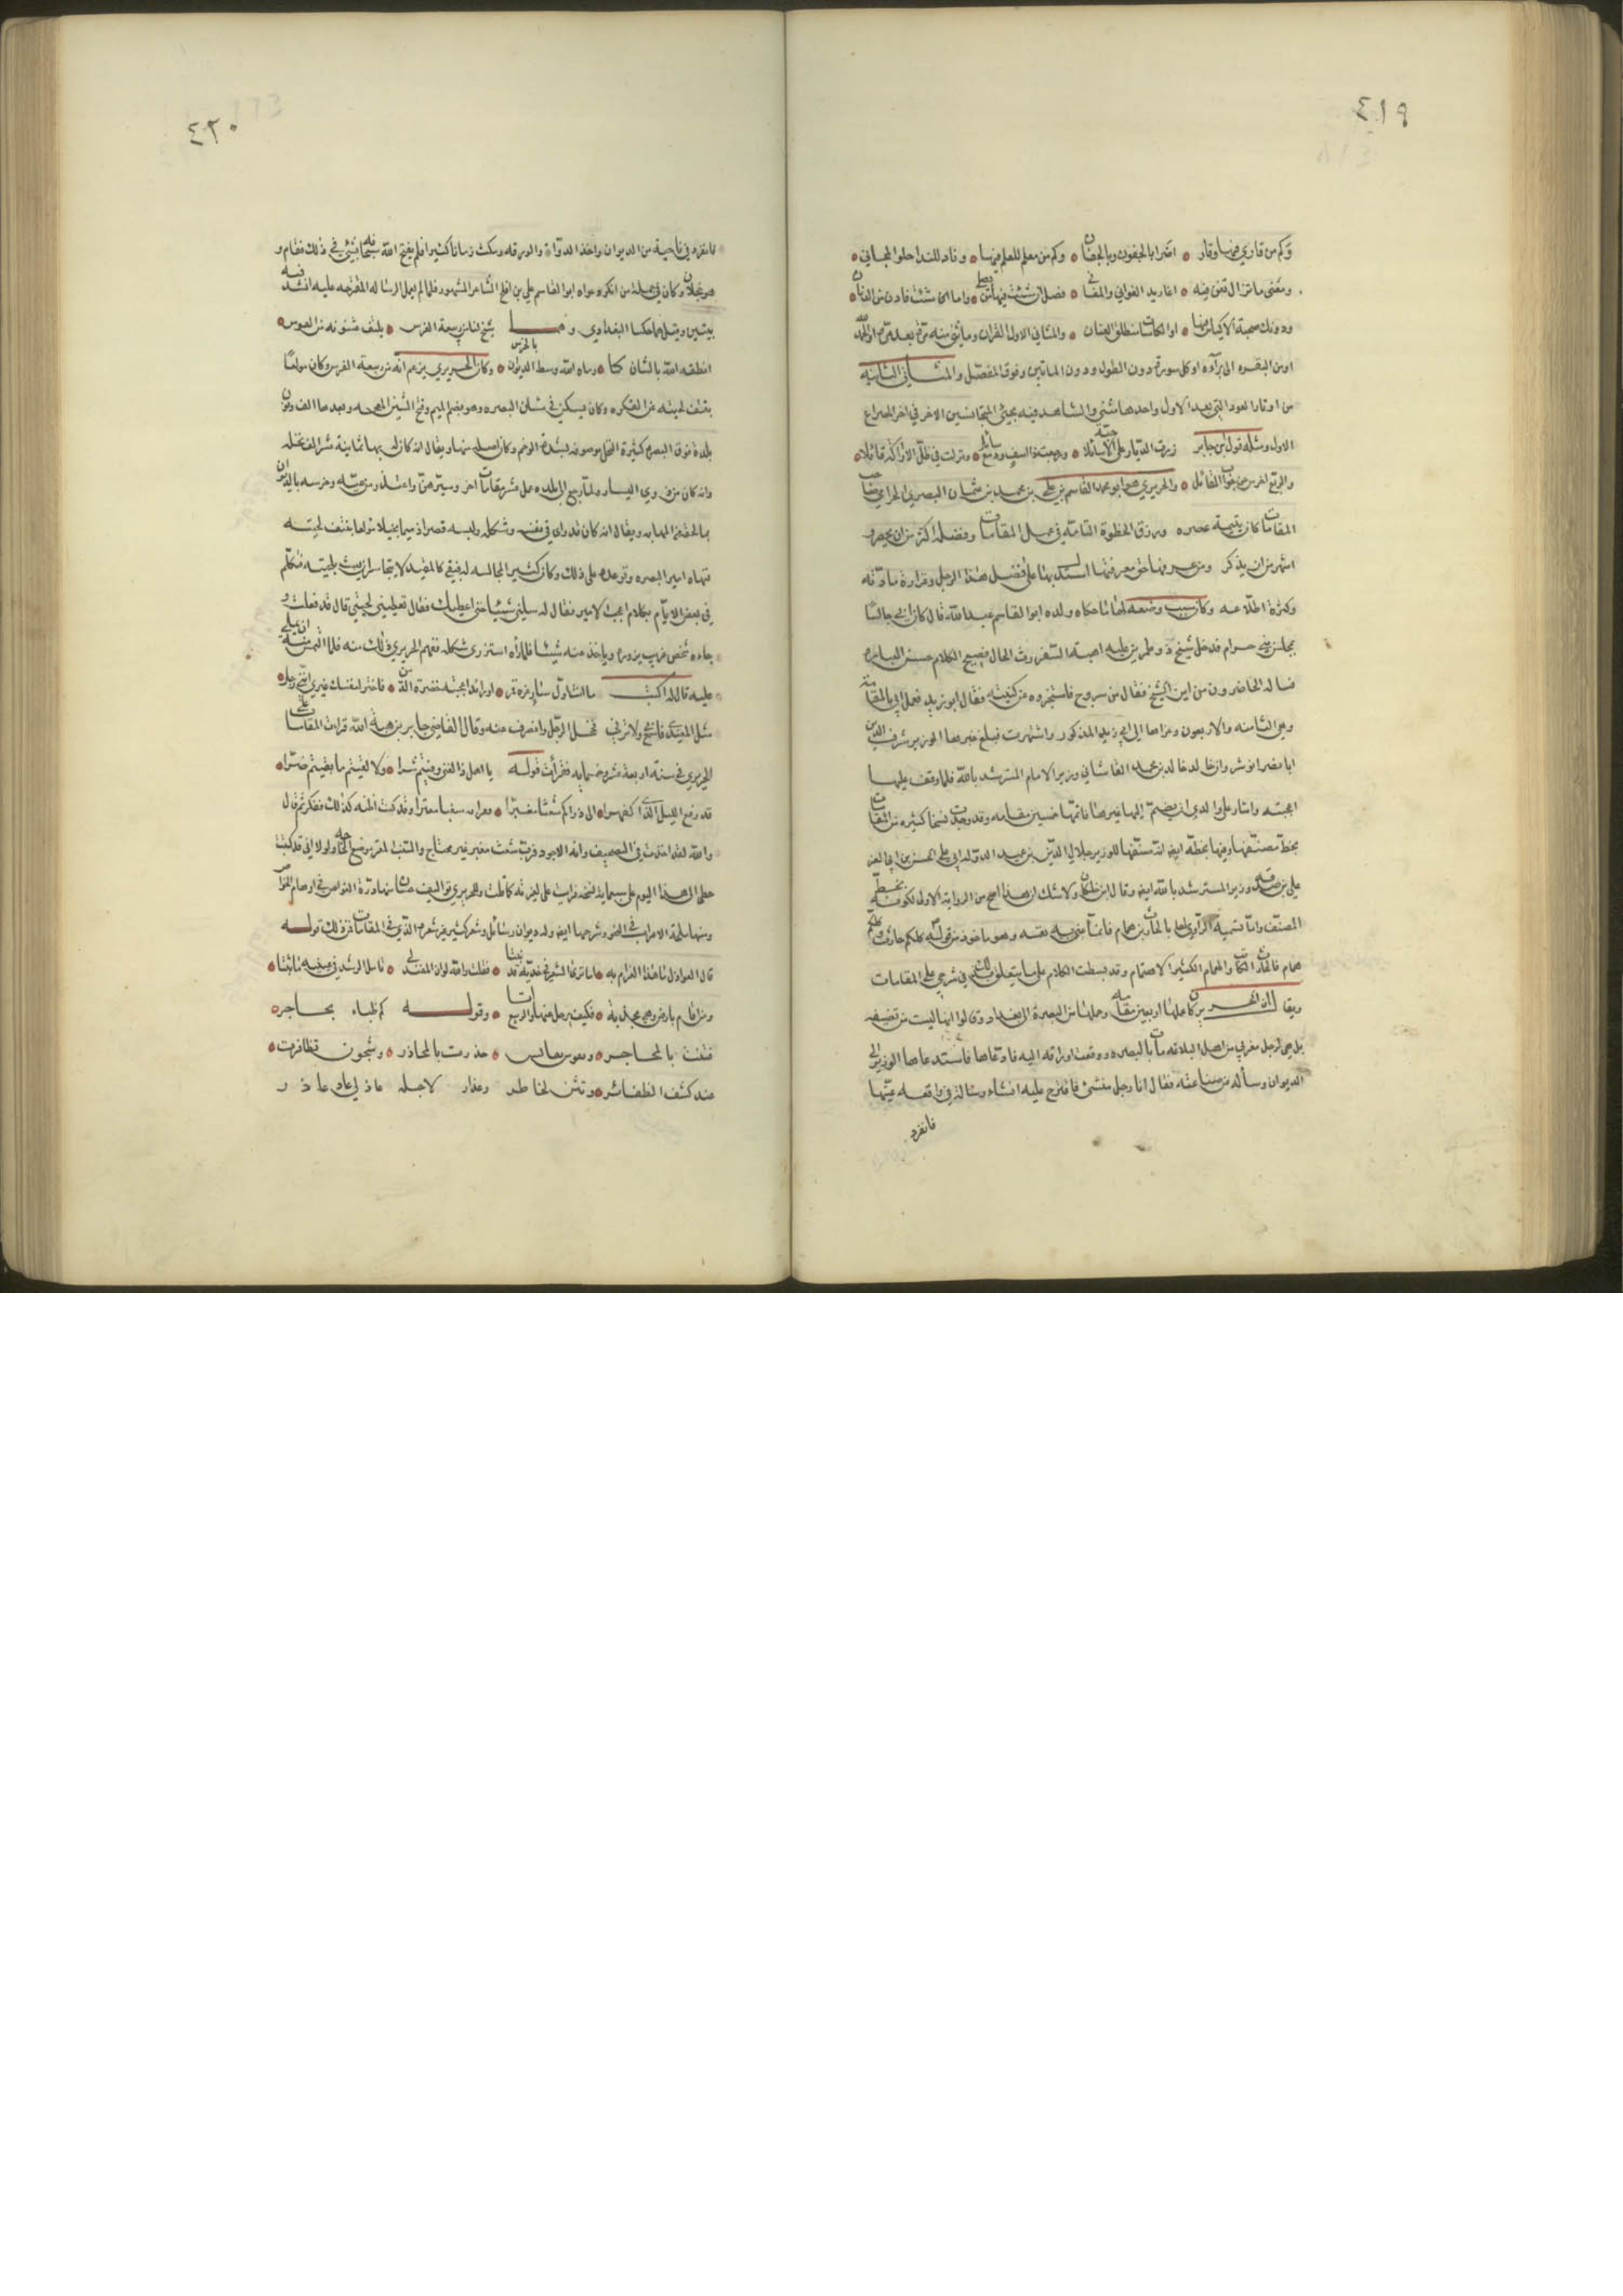 ٤١٩
وكم من قاري فيها وقار • اضرا بالجفون وبالجفان • وكم من معلم للعلم فيها • وناد للندا حلو المجاني •
ومغنى ما تزال تغن فيه • اغاريد الغواني والمغاني • فصل ان شئت فيها من يصلي • واما ان شئت فادن من الدنان •
ودونك صحبة الاكياس فيها • او الكاسات منطلق العنان • والمثاني الاول القران وما ثني منه مرة بعد مرة او الحمد
او من البقره الى برآءه او كل سورة دون الطول ودون الماتين وفوق المفصل والمثاني الثانيه
من اوتار العود التي بعد الاول واحدها مثنى والشاهد فيه مجيء المتجانسين الاخر في اخر المصراع
الاول ومثله قول بن جابر زرت الديار على الاحبة سائلا • ورجعت ذا اسف ودمع سائل • ونزلت في ظل الاراكة قائلا •
والربع اخرس عن جواب القائل • والحريري هو ابو محمد القاسم بن علي بن محمد بن عثمان البصري الحرامي صاحب
المقامات كان يتيمة عصره ورزق الحظوة التامة في عمل المقامات وفضله اكثر من ان يحصر و
اشهر من ان يذكر ومن عرفها حق معرفتها استدل بها على فضل هذا الرجل وغزارة مادته
وكثرة اطلاعه وكان سبب وضعه لها ما حكاه ولده ابو القاسم عبد الله قال كان ابي جالسا
بمجلس بني حرام فدخل شيخ ذو طمرين عليه اهبة السفر رث الحال فصيح الكلام حسن العباره
فساله الحاضرون من اين الشيخ فقال من سروج فاستخبروه عن كنيته فقال ابو زيد فعمل ابي المقامة
وهي الثامنه والاربعون وعزاها الى ابي زيد المذكور واشتهرت فبلغ خبرها الوزير شرف الدين
ابا نصر انوشروان بن خالد بن محمد القاشاني وزير الامام المسترشد بالله فلما وقف عليها
اعجبته واشار على والدي ان يضم اليها غيرها فاتمها خمسين مقامه وقد وجدت نسخا كثيره من المقامات
بخط مصنفها وفيها بخطه ايضا انه صنفها للوزير جلال الدين بن عميد الدوله ابي علي الحسن بن ابي العز
علي بن صدقه وزير المسترشد بالله ايضا وقال ابن خلكان ولا شك ان هذا اصح من الرواية الاولى لكونه بخط
المصنف واما تسمية الراوي لها بالحارث بن همام فانما عنى به نفسه وهو ماخوذ من قوله كلكم حارث وكلكم
همام فالحارث الكاسب والهمام الكثير الاهتمام وقد بسطت الكلام على ما يتعلق بذلك في شرحي على المقامات
ويقال ان الحريري كان عملها اربعين مقامه وحملها من البصرة الى بغداد وقالوا انها ليست من تصنيفه
بل هي لرجل مغربي من اهل البلاغه مات بالبصره ووقعت اوراقه اليه فادعاها فاستدعاه الوزير الى
الديوان وسأله عن صناعته فقال انا رجل منشئ فاقترح عليه انشاء رسالة في واقعه عينها
فانفرد
٤٢٠
فانفرد في ناحية من الديوان واخذ الدواة والورقه ومكث زمانا كثيرا فلم يفتح الله سبحانه بشئ في ذلك فقام و
هو خجلان وكان في جملة من انكر دعواه ابو القاسم علي بن افلح الشاعر المشهور فلما لم يعمل الرساله المقترحه عليه انشد فيه
بيتين وقيل هما لحكينا البغدادي وهما شيخ لنا من ربيعة الفرس • ينتف عثنونه من الهوس •
انطقه الله بالمشان كما • رماه الله وسط الديوان بالخرس • وكان الحريري يزعم انه من ربيعة الفرس وكان مولعا
بنتف لحيته عند الفكره وكان يسكن في مشان البصره وهو بضم الميم وفتح الشين المعجمه وبعدها الف ونون
بلدة فوق البصره كثيرة النخل موصوفه بشدة الوخم وكان اصله منها ويقال انه كان له بها ثمانية عشر الف نخله
وانه كان من ذوي اليسار ولما رجع الى بلده عمل عشر مقامات اخر وسيرهن واعتذر من عيه وخرسه بالديوان
بما لحقه من المهابه ويقال انه كان قذرا في نفسه وشكله ولبسه قصيرا ذميما بخيلا مولعا بنتف لحيته
فنهاه امير البصره وتوعده على ذلك وكان كثير المجالسه له فبقي كالمقيد لا يتجاسر ان يعبث بلحيته فتكلم
في بعض الايام بكلام اعجب الامير فقال له سلني شيئا حتى اعطيك فقال تعطيني لحيتي قال قد فعلت و
جاءه شخص غريب يزوره وياخذ عنه شيئا فلما رأه استزرى شكله ففهم الحريري ذلك منه فلما التمس منه ان يملي
عليه قال له اكتب ما انت اول سار غره قمر • او رائد اعجبته خضرة الدمن • فاختر لنفسك غيري انني رجل •
مثل المعيدي فاسمع بي ولا ترني فخجل الرجل وانصرف عنه وقال القاضي جابر بن هبة الله قرات المقامات على
الحريري في سنة اربعة عشر وخمسمايه فقرأت قوله يا اهل ذا المغنى وقيتم شرا • ولا لقيتم ما بقيتم ضرا •
قد دفع الليل الذي اكفهرا • الى ذراكم شعثا مغبرا • فقراته سغبا معترا وقد كنت اظنه كذلك ففكر ثم قال
والله لقد اجدت في التصحيف وانه الاجود فرب شعث مغبر غير محتاج والسغب المعتر موضع الحاجه ولولا اني قد كتبت
خطي الى هذا اليوم على سبعماية نسخه قرات علي لغيرته كما قلت وللحريري تواليف حسان منها درة الغواص في اوهام الخواص
ومنها ملحة الاعراب في النحو وشرحها ايضا وله ديوان رسائل وشعر كثير غير شعره الذي في المقامات فمن ذلك قوله
قال العواذل ما هذا الغرام به • اما ترى الشعر في خديه قد نبتا • فقلت والله لو ان المفند لي • تامل الرشد في عينيه ما ثبتا •
ومن اقام بارض وهي مجدبة • فكيف يرحل عنها والربيع اتى • وقوله كم ظباء بحاجر •
فتنت بالمحاجر • ونفوس نفايس • حذرت بالمحاذر • وشجون تظافرت •
عند كشف الظفائر • وتثن لخاطر وعذار لاجله عاذلي عاد عاذر